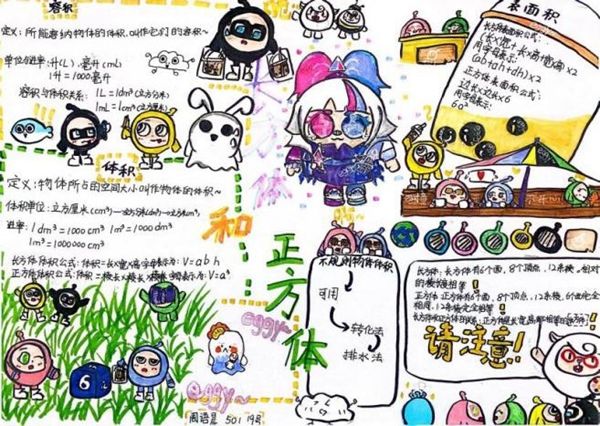 容积
定义：所能容纳物体的体积,叫作它们的容积～
单位/进率：升(L)，毫升(mL)
1升=1000毫升
容积与体积关系：1L=1dm³(立方分米)
1mL=1cm³(立方厘米)
体积
定义：物体所占的空间大小叫作物体的体积～
体积单位：立方厘米(cm³)—立方分米(dm³)—立方米(m³)
进率：1dm³=1000cm³ 1m³=1000dm³
1m³=1000000cm³
长方体体积公式：体积=长×宽×高 字母表示为：V=abh
正方体体积公式：体积=棱长×棱长×棱长 字母表示为：V=a³
长方体
和
正方体
eggy~
eggy~
6
周语
501 19号
表面积
长方体表面积公式：
(长×宽+长×高+宽×高)×2
用字母表示：
(ab+ah+bh)×2
正方体表面积公式：
边长×边长×6
用字母表示：
6a²
不规则物体体积
可用
转化法
排水法
长方体：长方体有6个面，8个顶点，12条棱，相对
的棱长度相等！
正方体：正方体有6个面，8个顶点，12条棱，6个面完全
相同，12条棱完全相等！
请注意！